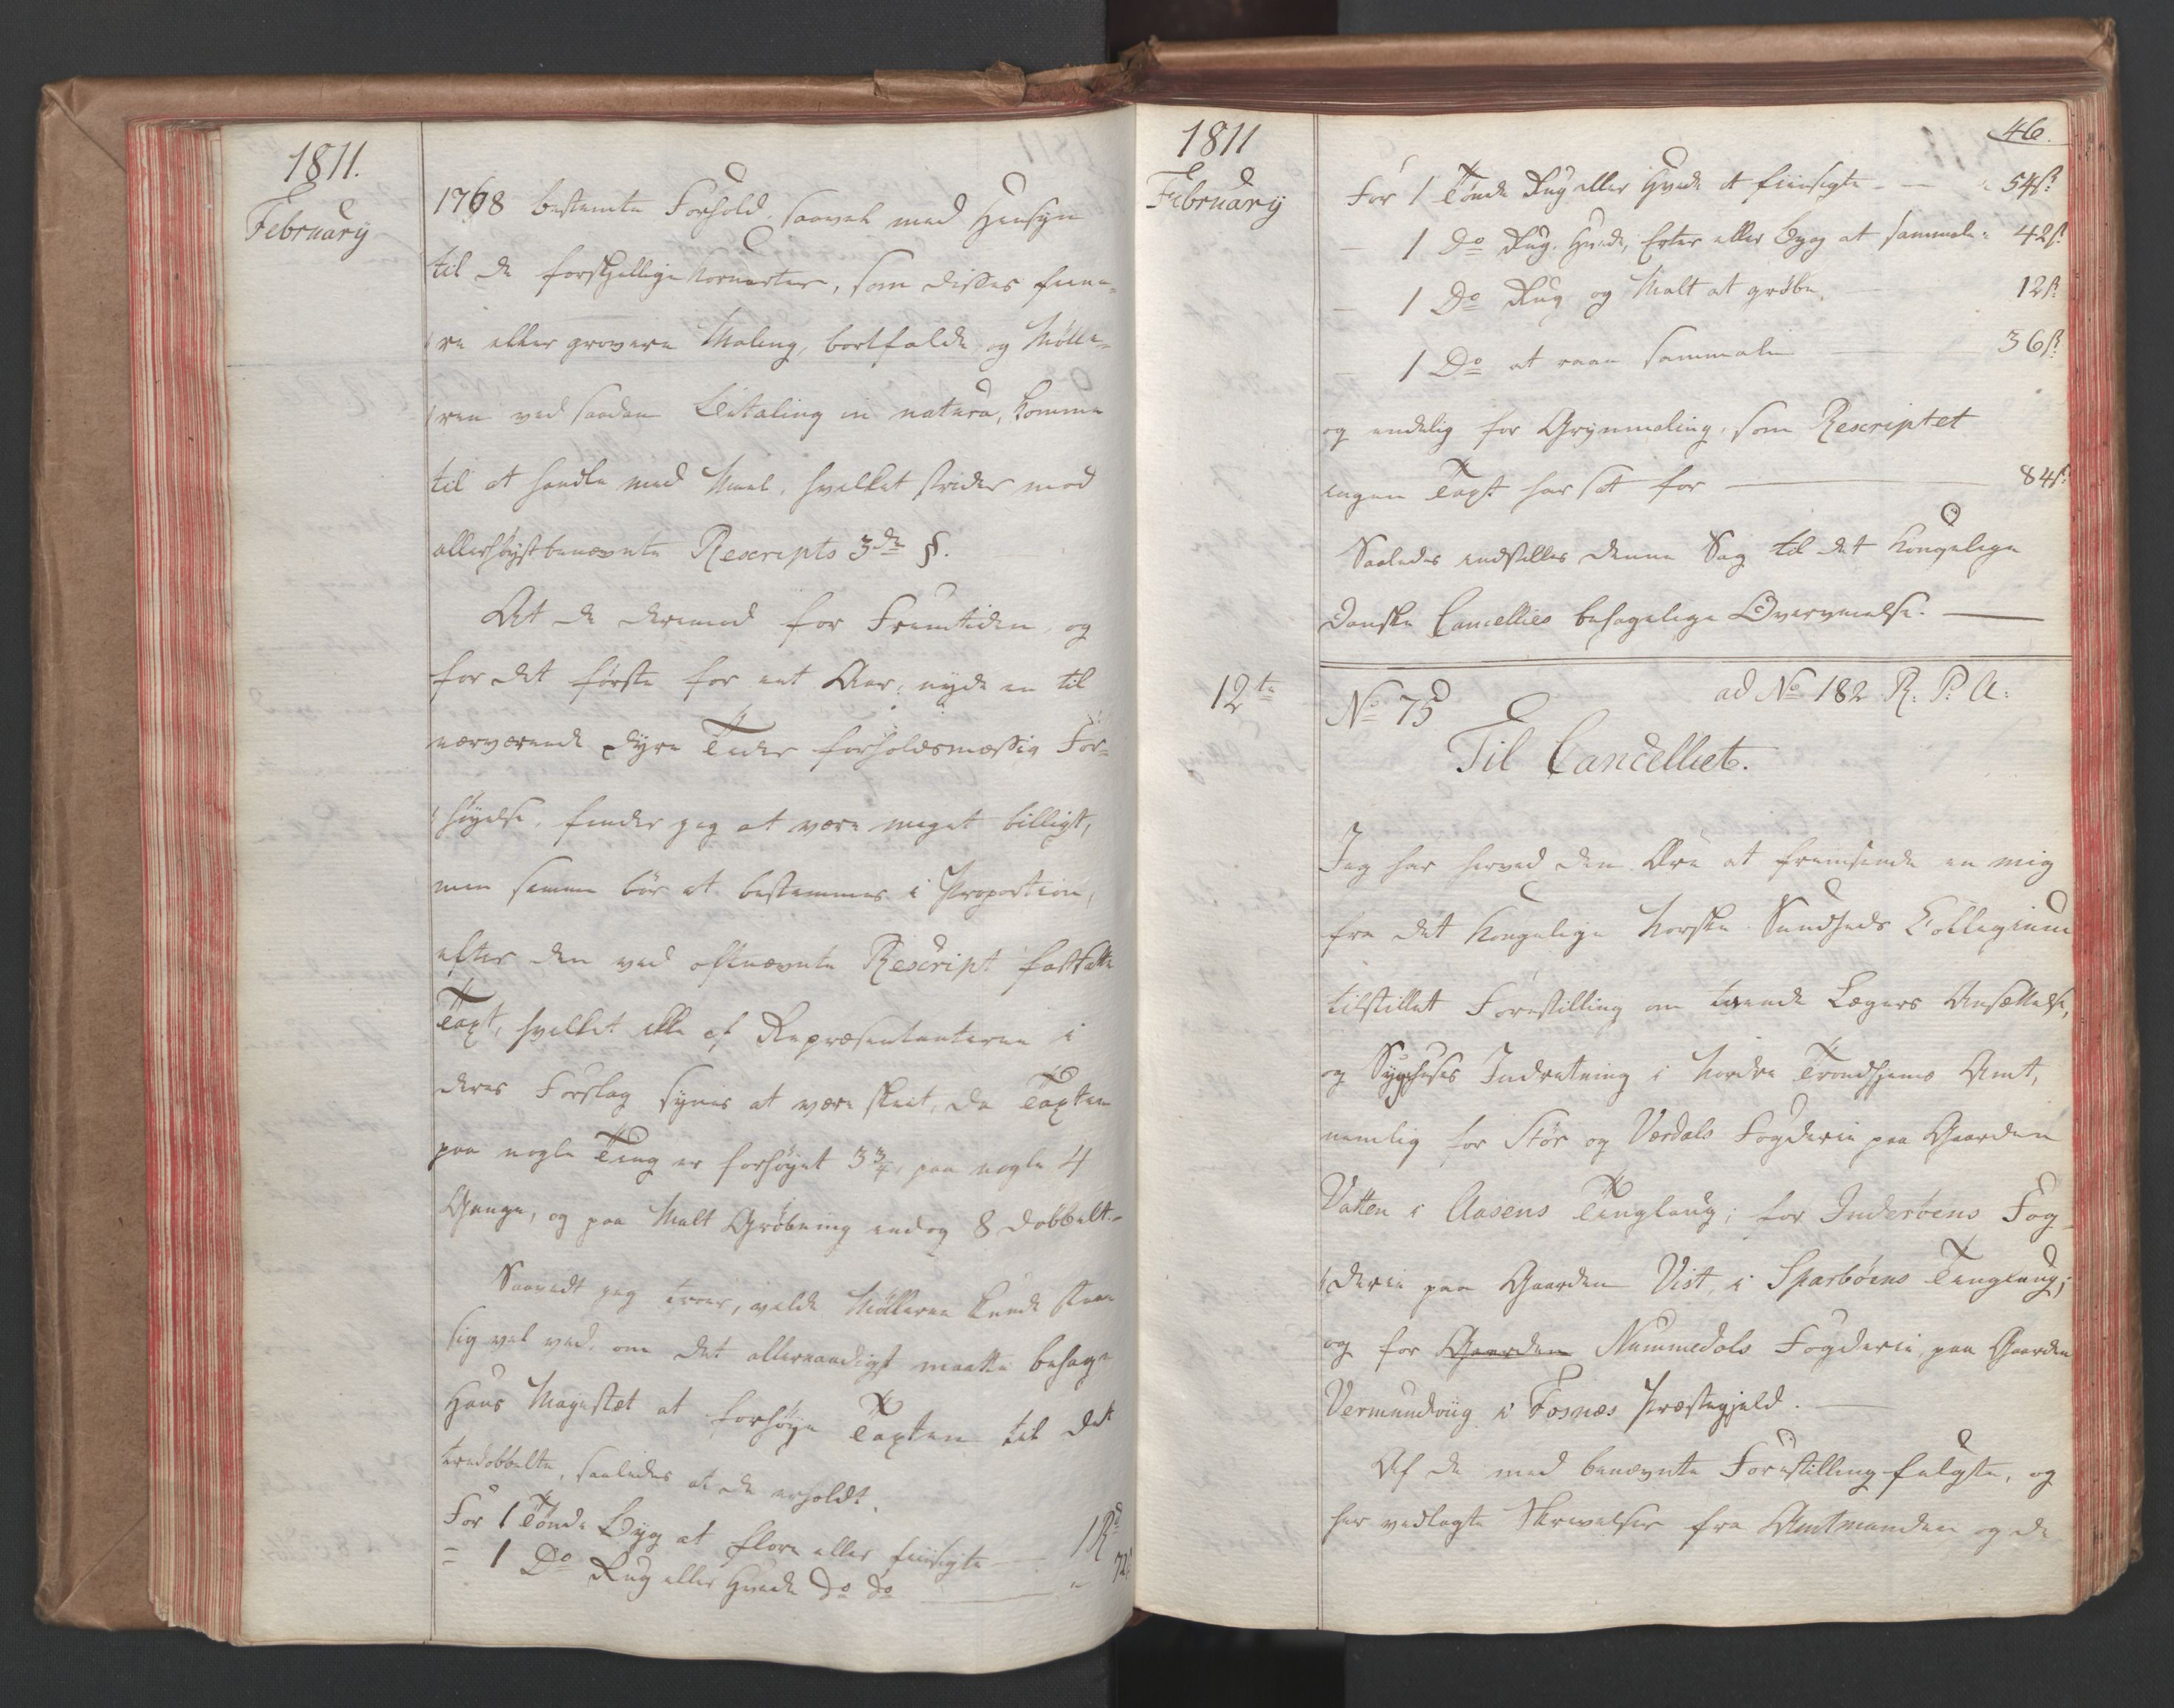 1811.
February
1768 bestemte Forhold, saavel med Hensyn
til de forskjellige Kornarter, som disses fiine-
re eller grovere Maling, bortfalde, og Mølle-
ren ved saadan Betaling in natura, komme
til at handle med Meel, hvilket strider mod
allerhøystbenævnte Rescripts 3de §.
At de derimod for Fremtiden, og
for det første for eet Aar, nyde en til
nærværende dyre Tider forholdsmæssig For-
høyelse, finder jeg at være meget billigt,
men samme bør at bestemmes i Proportion,
efter den ved oftnævnte Rescript fastsatte
Taxt, hvilket ikke af Repræsentanterne i
deres Forslag synes at være skeet, da Taxten
paa nogle Ting er forhøyet 3¾, paa nogle 4
Gange, og paa Malt Grøbning endog 8 dobbelt.
Saavidt jeg troer, vilde Møllerne kunde staae
sig vel ved, om det allernaadigst maatte behage
Hans Majestæt at forhøye Taxten til det
tredobbelte, saaledes at de erholdt.
For 1 Tønde Byg at flore eller fiinsigte — 1 Rd
= 1 Do Rug eller Hvede do do — " 72ß
1811
February
46.
For 1 Tønde Rug eller Hvede at fiinsigte — — " 54ß:
— 1 Do Rug, Hvede, Erter eller Byg at sammale = 42ß
— 1 Do Rug og Malt at grøbe, — 12ß:
— 1 Do at raae sammale — 36ß:
og endelig for Grynmaling, som Rescriptet
ingen Taxt har sat for — 84ß:
Saaledes indstilles denne Sag til det Kongelige
Danske Cancellies behagelige Overveielse. —
12te
No 75
ad No 182 R: P: A:
Til Cancelliet.
Jeg har herved den Ære at fremsende en mig
fra det Kongelige Norske Sundheds Collegium
tilstillet Forestilling om trende Lægers Ansættelse,
og Sygehuses Indretning i Nordre Trondhjems Amt,
nemlig for Stør og Værdals Fogderie paa Gaarden
Vatten i Aasens Tinglaug; for Inderøens Fog-
derie paa Gaarden Vist, i Sparboens Tinglaug;
og for Gaarden Nummedals Fogderie, paa Gaarden
Vermundvig i Fosnæs Præstegjeld. —
Af de med benævnte Forestilling fulgte, og
her vedlagte Skrivelser fra Amtmanden og de